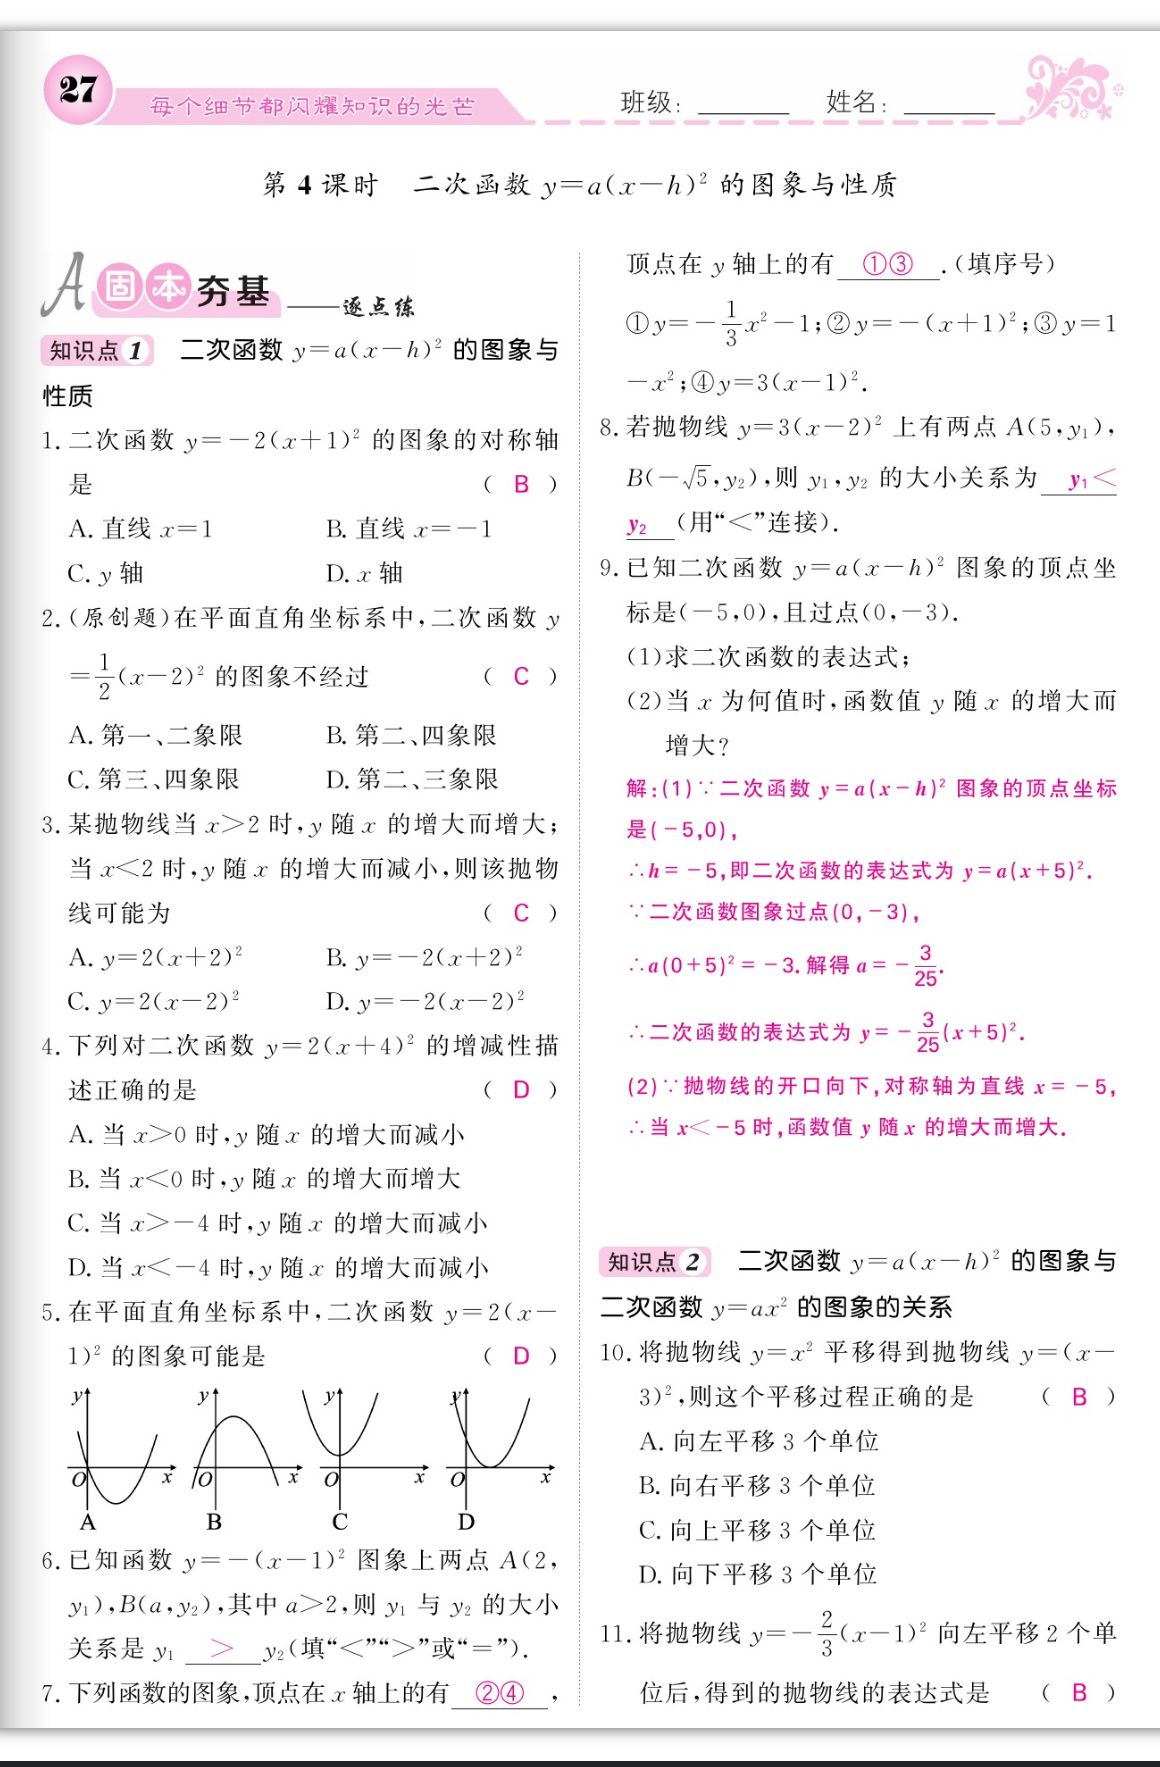 27
每个细节都闪耀知识的光芒
班级：
姓名：
第 4 课时 二次函数 y=a(x－h)² 的图象与性质
A 固本夯基 ——逐点练
知识点 1 二次函数 y=a(x－h)² 的图象与
性质
1. 二次函数 y=－2(x＋1)² 的图象的对称轴
是 ( B )
A. 直线 x=1 B. 直线 x=－1
C. y 轴 D. x 轴
2. (原创题)在平面直角坐标系中,二次函数 y
=1/2(x－2)² 的图象不经过 ( C )
A. 第一、二象限 B. 第二、四象限
C. 第三、四象限 D. 第二、三象限
3. 某抛物线当 x>2 时,y 随 x 的增大而增大;
当 x<2 时,y 随 x 的增大而减小,则该抛物
线可能为 ( C )
A. y=2(x＋2)² B. y=－2(x＋2)²
C. y=2(x－2)² D. y=－2(x－2)²
4. 下列对二次函数 y=2(x＋4)² 的增减性描
述正确的是 ( D )
A. 当 x>0 时,y 随 x 的增大而减小
B. 当 x<0 时,y 随 x 的增大而增大
C. 当 x>－4 时,y 随 x 的增大而减小
D. 当 x<－4 时,y 随 x 的增大而减小
5. 在平面直角坐标系中,二次函数 y=2(x－
1)² 的图象可能是 ( D )
y y y y
O x O x O x O x
A B C D
6. 已知函数 y=－(x－1)² 图象上两点 A(2,
y₁),B(a,y₂),其中 a>2,则 y₁ 与 y₂ 的大小
关系是 y₁ > y₂(填“<”“>”或“=”).
7. 下列函数的图象,顶点在 x 轴上的有 ②④ ,
顶点在 y 轴上的有 ①③ .(填序号)
①y=－1/3x²－1;②y=－(x＋1)²;③y=1
－x²;④y=3(x－1)².
8. 若抛物线 y=3(x－2)² 上有两点 A(5,y₁),
B(－√5,y₂),则 y₁,y₂ 的大小关系为 y₁<
y₂ (用“<”连接).
9. 已知二次函数 y=a(x－h)² 图象的顶点坐
标是(－5,0),且过点(0,－3).
(1)求二次函数的表达式;
(2)当 x 为何值时,函数值 y 随 x 的增大而
增大?
解:(1)∵二次函数 y=a(x－h)² 图象的顶点坐标
是(－5,0),
∴h=－5,即二次函数的表达式为 y=a(x＋5)².
∵二次函数图象过点(0,－3),
∴a(0＋5)²=－3. 解得 a=－3/25.
∴二次函数的表达式为 y=－3/25(x＋5)².
(2)∵抛物线的开口向下,对称轴为直线 x=－5,
∴当 x<－5 时,函数值 y 随 x 的增大而增大.
知识点 2 二次函数 y=a(x－h)² 的图象与
二次函数 y=ax² 的图象的关系
10. 将抛物线 y=x² 平移得到抛物线 y=(x－
3)²,则这个平移过程正确的是 ( B )
A. 向左平移 3 个单位
B. 向右平移 3 个单位
C. 向上平移 3 个单位
D. 向下平移 3 个单位
11. 将抛物线 y=－2/3(x－1)² 向左平移 2 个单
位后,得到的抛物线的表达式是 ( B )